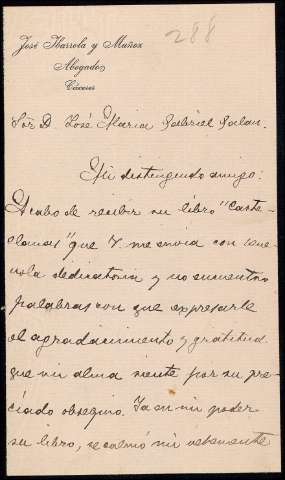 288
José Ibarrola y Muñoz
Abogado
Cáceres
Sor D. José Maria Gabriel Galan.
Mi distinguido amigo:
Acabo de recibir su libro "Caste-
llanas" que V me envia con
dedicatoria y no encuentro
palabras con que expresarle
el agradecimiento y gratitud
que mi alma siente por su pre-
ciado obsequio. Ya en mi poder
su libro, se calmó mi vehemente